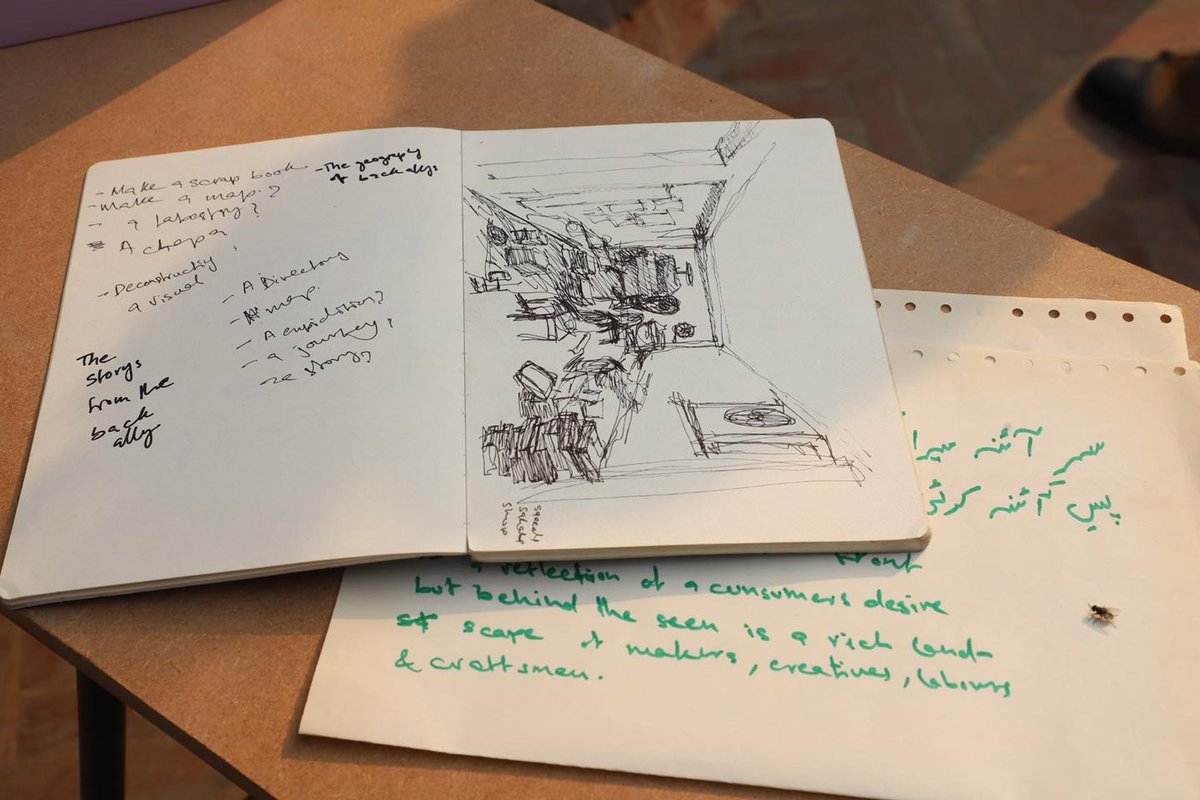 - Make a scrap book
- Make a map. ?
- a tapestry?
A cheap
- Deconstructing
a visual
- The geography
of back allys
- A Directory
- A map.
- A expidition?
- a journey?
story?
The
storys
from the
back
ally
Saeeds
shop
سرِ آئنہ میرا
پسِ آئنہ کوئی
front
a reflection of a consumers desire
but behind the seen is a rich land-
scape of makers, creatives, labours
& craftsmen.